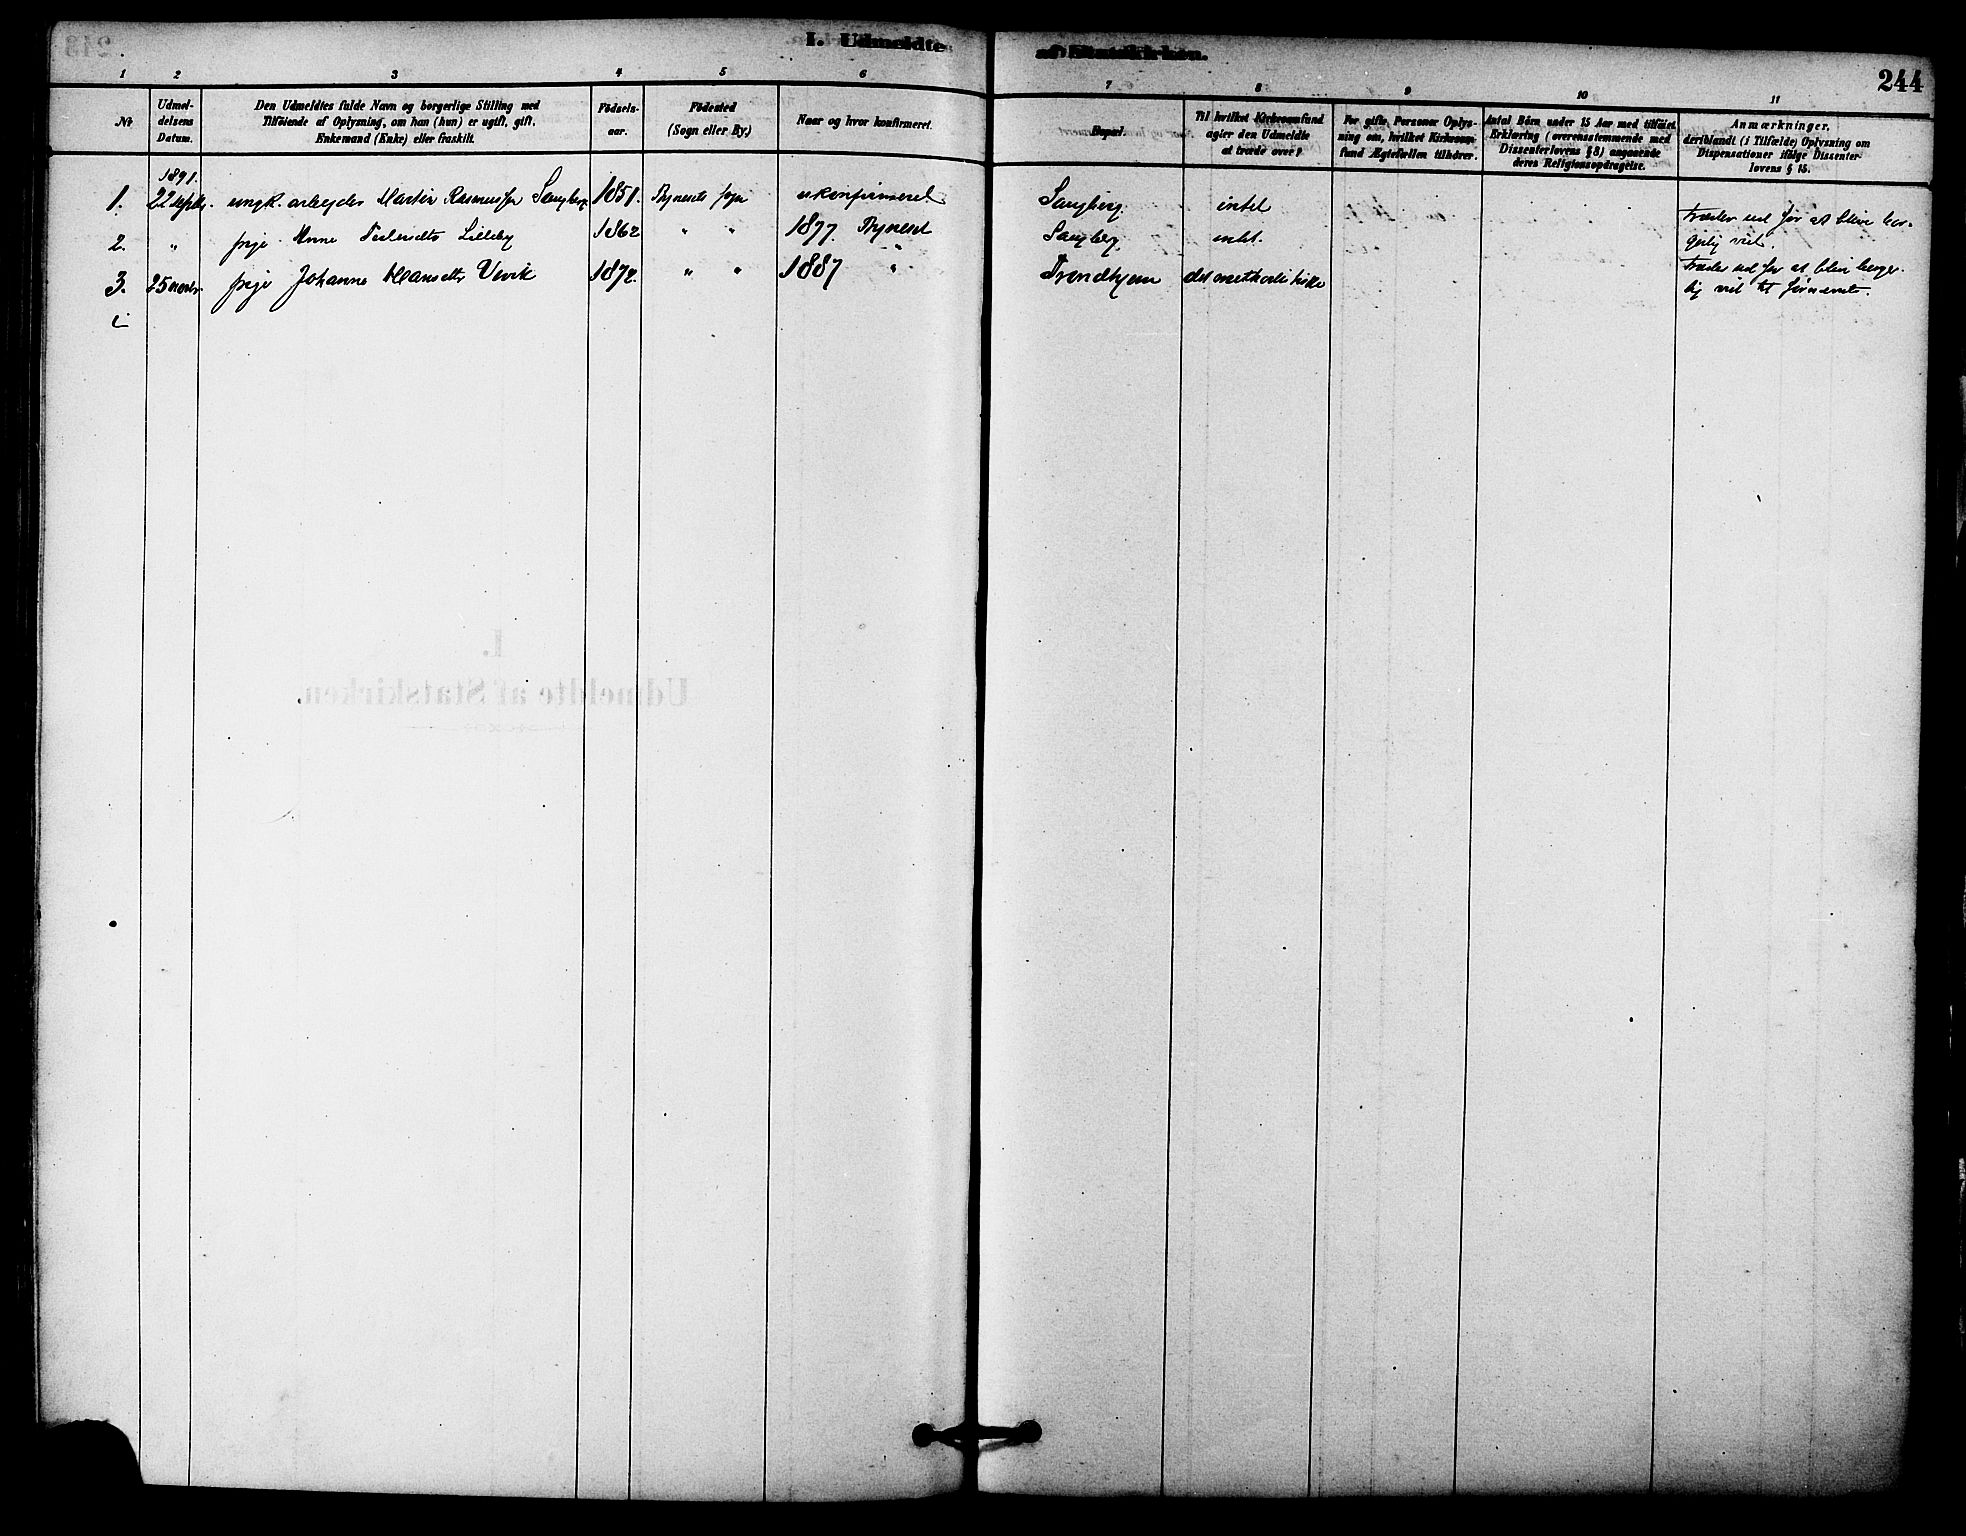 I. Udmeldte af Statskirken.
244
1 2 3 4 5 6 7 8 9 10 11
No
Udmel-
delsens
Datum.
Den Udmeldtes fulde Navn og borgerlige Stilling med
Tilføiende af Oplysning, om han (hun) er ugift, gift,
Enkemand (Enke) eller fraskilt.
Fødsels-
aar.
Fødested
(Sogn eller By.)
Naar og hvor konfirmeret.
Bopæl.
Til hvilket Kirkesamfund
agter den Udmeldte
at træde over?
For gifte Personer Oplys-
ning om, hvilket Kirkesam-
fund Ægtefællen tilhører.
Antal Børn under 15 Aar med tilføiet
Erklæring (overensstemmende med
Dissenterlovens § 8) angaaende
deres Religionsopdragelse.
Anmærkninger,
deriblandt (i Tilfælde) Oplysning om
Dispensationer ifølge Dissenter-
lovens § 15.
1891.
1. 22 septbr. ungk. arbejder Martin Rasmussen Saugberg 1851. Bynesets sogn ukonfirmeret Saugberg. intet
Træder ud for at blive bor-
gerlig viet.
2. " pige Anne Lilleby 1862 " " 1877. Byneset Saugberg. intet.
3. 25 novbr. pige Johanna Hansdtr Vivik 1872. " " 1887 " Trondhjem det methodistiske
Træder ud for at blive borger-
lig viet